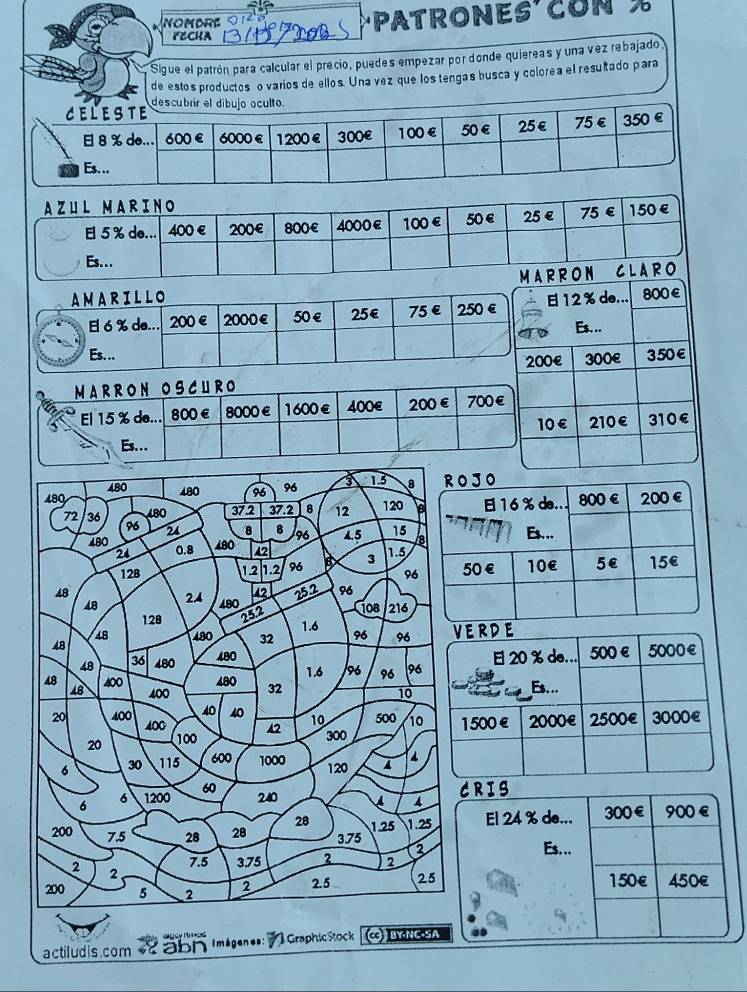 PATRONES CON %
NOMBRE
FECHA
Sigue el patrón para calcular el precio, puedes empezar por donde quiereas y una vez rebajado,
de estos productos o varios de ellos. Una vez que los tengas busca y colorea el resultado para
descubrir el dibujo oculto.
CELESTE
El 8 % de... 600 € 6000 € 1200 € 300€ 100 € 50 € 25 € 75 € 350 €
Es...
AZUL MARINO
El 5 % de... 400 € 200€ 800€ 4000€ 100 € 50 € 25 € 75 € 150 €
Es...
AMARILLO
El 6 % de... 200 € 2000€ 50 € 25€ 75 € 250 €
Es...
MARRON CLARO
El 12 % de... 800€
Es...
200€ 300€ 350€
10 € 210 € 310 €
MARRON OSCURO
El 15 % de... 800 € 8000 € 1600 € 400€ 200 € 700 €
Es...
ROJO
El 16 % de... 800 € 200 €
Es...
50 € 10€ 5 € 15€
VERDE
El 20 % de... 500 € 5000€
Es...
1500 € 2000€ 2500€ 3000€
GRIS
El 24 % de... 300 € 900 €
Es...
150€ 450€
480 480 480 96 96 3 1.5 8
72 36 480 37.2 37.2 8 12 120 8
480 96 24 8 8 96 4.5 15 8
24 0.8 480 42 3 1.5
128 1.2 1.2 96 8 96
48 48 2.4 480 42 25.2 96
128 25.2 108 216
48 48 480 32 1.6 96 96
48 36 480 480
48 48 400 400 480 32 1.6 96 96 96
10
20 400 400 40 40 42 10 500 10
20 100 300
6 30 115 600 1000 120 4 4
6 6 1200 60 240 4 4
200 7.5 28 28 28 3.75 1.25 1.25
2 2 7.5 3.75 2 2 2
200 5 2 2 2.5 2.5
actiludis.com abn Imágenes: GraphicStock (cc) BY-NC-SA